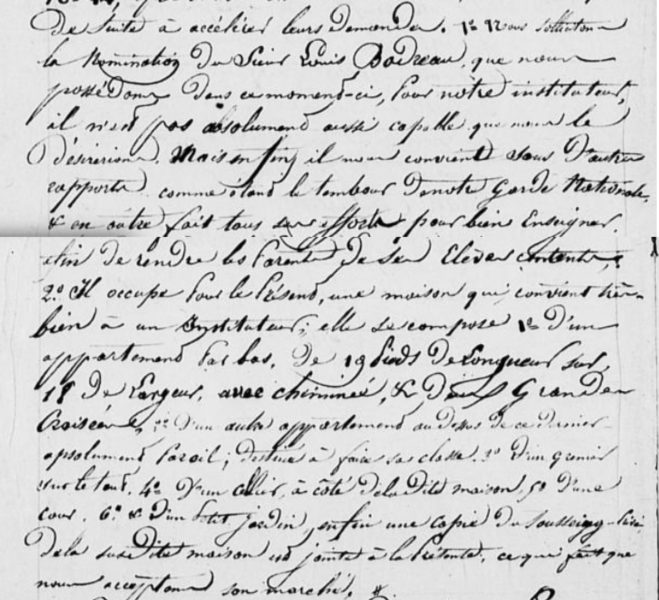 de suite à accélérer leurs demandes. 1° Nous sollicitons
la nomination du Sieur Louis Boireau, que nous
possédons dans ce moment-ci, pour notre instituteur,
il n'est pas absolument aussi capable que nous le
désirerions. Mais enfin il nous convient sous d'autres
rapports comme étant le tambour de notre Garde Nationale,
& en outre fait tous ses efforts pour bien Enseigner,
afin de rendre les Parents de ses Elèves contents,
2° Il occupe pour le Présent, une maison qui convient très-
bien à un Instituteur; elle se compose 1° D'un
appartement Par bas, De 19 Pieds de Longueur sur
18 De Largeur, avec cheminée, & Deux Grandes
Croisées, 2° D'un autre appartement au dessus de ce dernier
absolument Pareil; destiné à faire sa classe. 3° D'un grenier
sur le tout. 4° D'un cellier, à côté de la dite maison. 5° D'une
cour. 6° & d'un Petit jardin, enfin une copie du
De la susdite maison est jointe à la Présente, ce qui fait que
nous acceptons son marché, &.